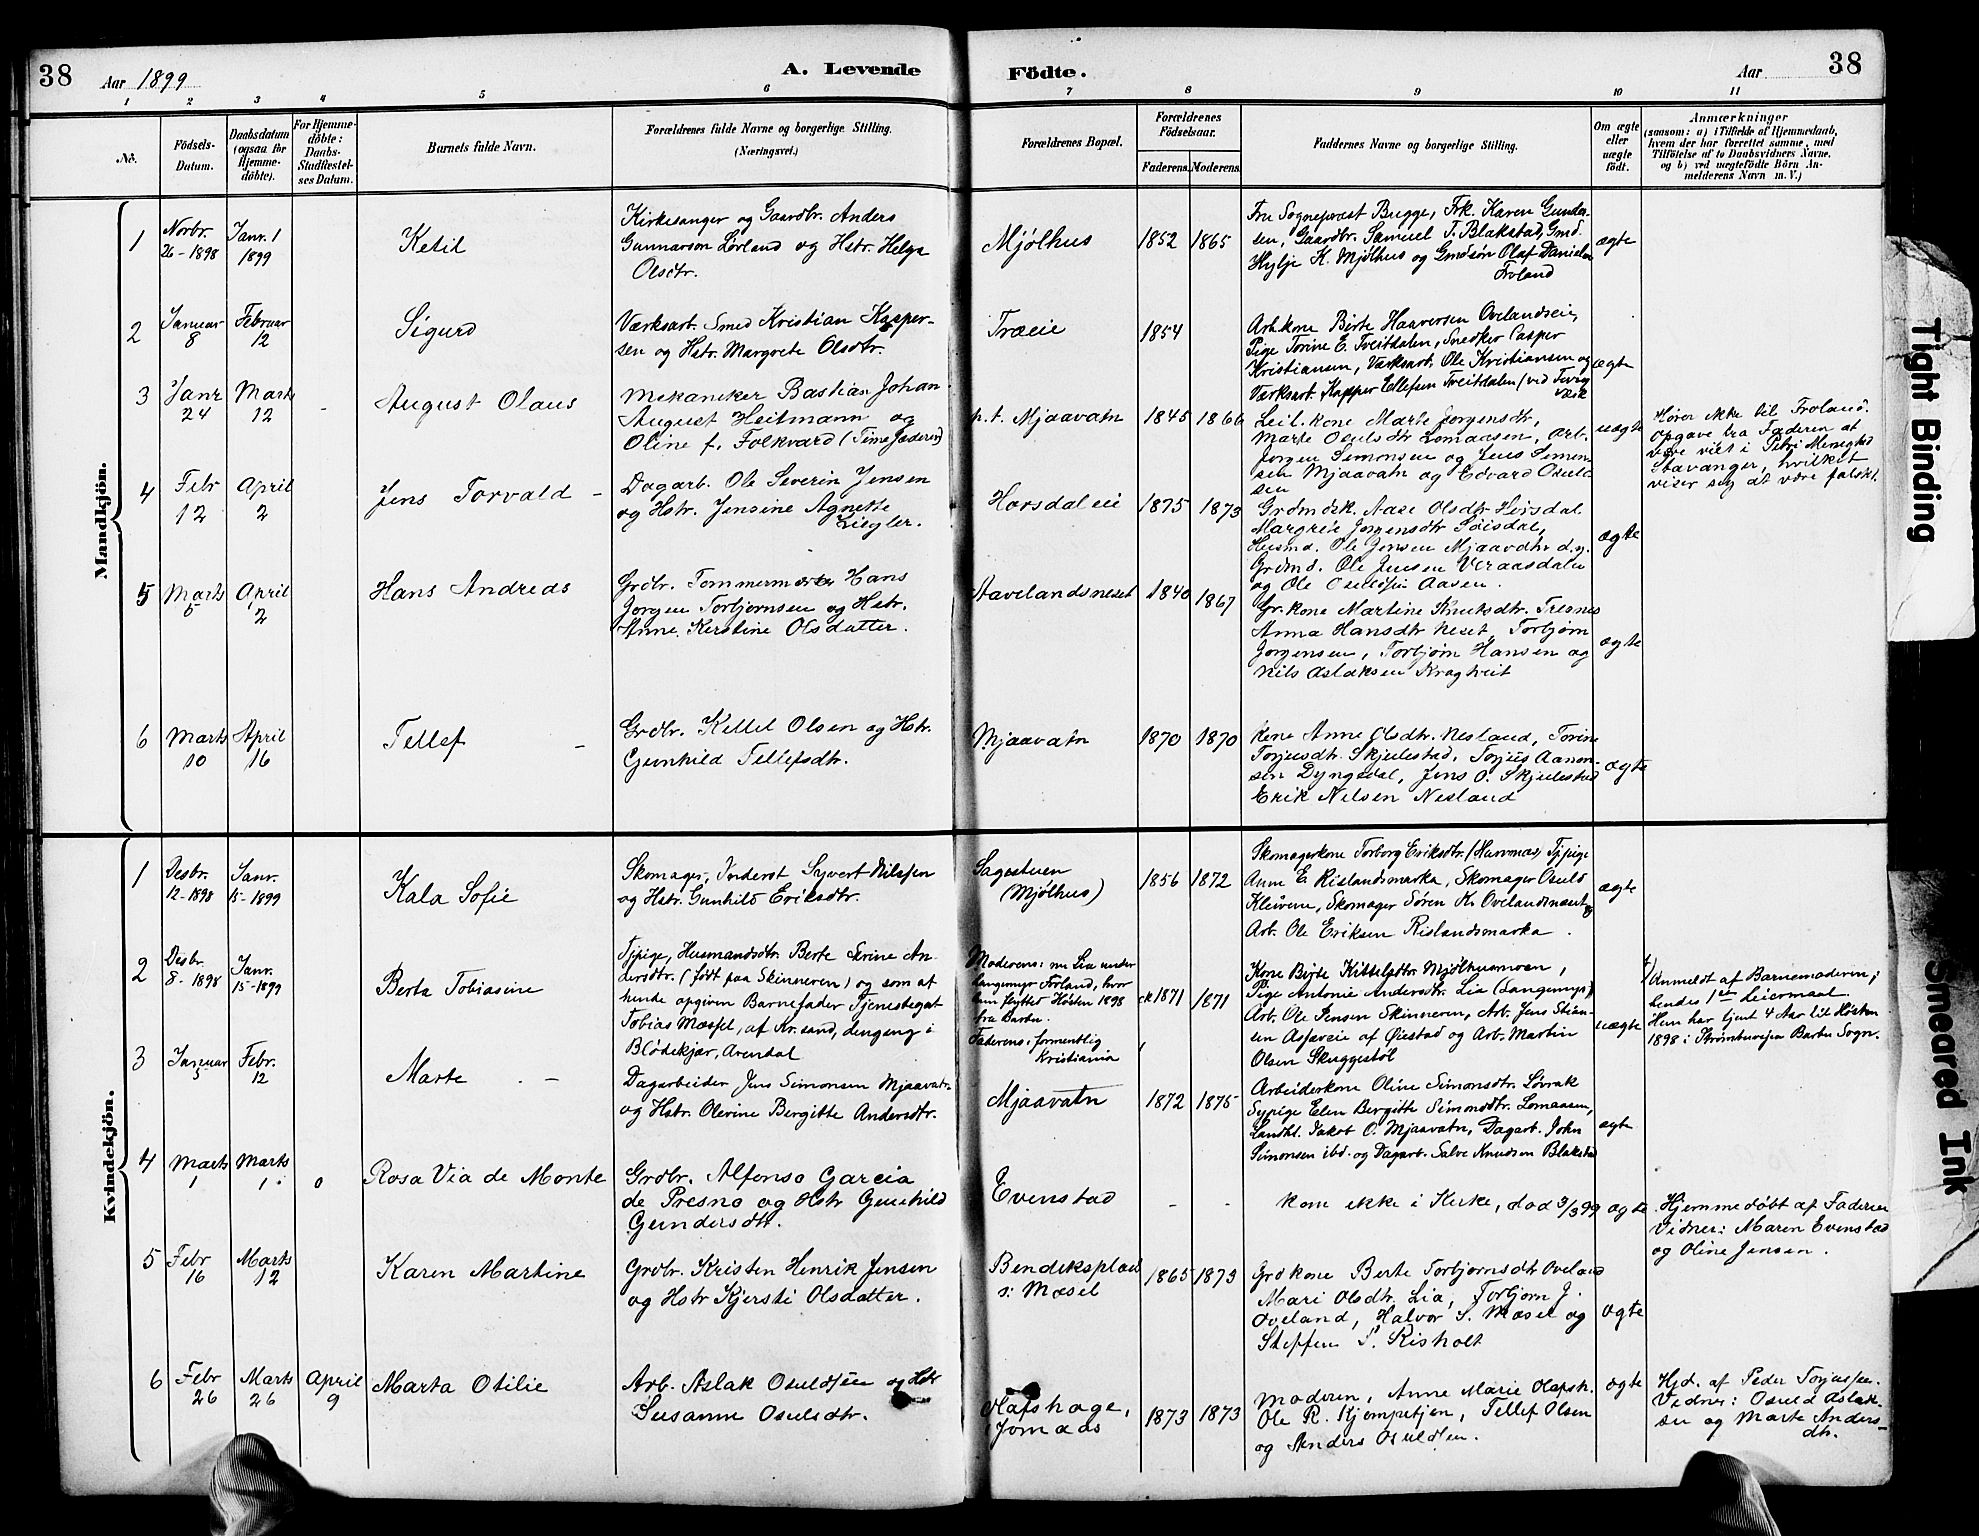 38 Aar 1899 A. Levende Födte. Aar 38
1 2 3 4 5 6 7 8 9 10 11
No.
Födsels-
Datum.
Daabsdatum
(ogsaa for
Hjemme-
döbte).
For Hjemme-
döbte:
Daabs-
Stadfæstel-
ses Datum.
Barnets fulde Navn.
Forældrenes fulde Navne og borgerlige Stilling.
(Næringsvei.)
Forældrenes Bopæl.
Forældrenes
Födselsaar.
Faderens. Moderens.
Faddernes Navne og borgerlige Stilling.
Om ægte
eller
uægte
födt.
Anmærkninger
(saasom: a) i Tilfælde af Hjemmedaab,
hvem der har forrettet samme, med
Tilföielse af to Daabsvidners Navne,
og b) ved uegtefödte Börn An-
melderens Navn m. V.)
Mandkjön.
1
Novbr.
26-1898
Janr. 1
1899
Ketil
Kirkesanger og Gaardbr. Anders
Gunnarson Lörland og Hstr. Helga
Olsdtr.
Mjölhus
1852 1865
Fru Sognepræst Bugge, Frk. Karen Gunder-
sen, Gaardbr. Samuel T. Blakstad, Gmd.
Hylje K. Mjölhus og Gmdsön Olaf Danielsen
Froland
ægte
2
Januar
8
Februar
12
Sigurd
Værksarb. Smed Kristian Kasper-
sen og Hstr. Margrete Olsdtr.
Træeie
1854
Arb.kone Birte Haaversen Ovelandseie,
Pige Torine E. Treitdalen, Snedker Casper
Kristiansen, Værksarb. Ole Kristiansen og
Værksarb. Kasper Ellefsen Treitdalen (ved
ægte
3
Janr
24
Marts
12
-
August Olaus
Mekaniker Bastian Johan
August Heitmann og
Oline f. Folkvard (Time Jæderen)
p.t. Mjaavatn
1845 1866
Leil.kone Marte Jorgensdtr,
Marte Osuldsdtr Lomaasen, Arb.
Jorgen Simonsen og Jens Simon-
sen Mjaavatn og Edvard Osuld-
sen
uægte
Hører ikke til Froland.
Opgave fra Faderen at
være viet i Petri Menighed
Stavanger, hvilket
viser seg at være falskt.
4
Febr
12
April
2
Jens Torvald -
Dagarb. Ole Severin Jensen
og Hstr. Jensine Agnette
Ziegler.
Horsdaleie
1875 1873
Grdmdsk. Aase Olsdtr Heirsdal
Margrete Jorgensdtr
Husmd. Ole Jensen Mjaavatn d.y.
Grdmd. Ole Jensen
og Ole Osuldsen Aasen.
ægte
5
Marts
5
April
2
Hans Andreas
Grdbr. Tommermester Hans
Jorgen Torbjornsen og Hstr.
Anne Kerstine Olsdatter.
Aavelandsneset
1840 1867
Gr.kone Martine Knutsdtr. Tresnes
Anna Hansdtr Neset, Torbjørn
Jorgensen, Torbjørn Hansen og
Nils Aslaksen Kragtveit
ægte
6
Marts
10
April
16
Tellef -
Grdbr. Kettel Olsen og Hstr.
Gunhild Tellefsdtr.
Mjaavatn
1870 1870
Kone Anne Olsdtr. Nesland, Torine
Torjusdtr. Skjulestad, Torjus Aanon-
sen Dyngedal, Jens O. Skjulestad
Erik Nelsen Nesland
ægte
Kvindekjön.
1
Desbr.
12-1898
Janr.
15-1899
Kala Sofie
Skomager, Inderst Syvert Nilssen
og Hstr. Gunhild Eriksdtr.
Sagestuen
(Mjölhus)
1856 1872
Skomagerkone Torborg Eriksdtr. Tjpige
Anne E. Rislandsmarka, Skomager Osuld
Kleivene, Skomager Sören K. Ovelandsneset og
Arb. Ole Eriksen Rislandsmarka.
ægte
2
Desbr.
8-1898
Janr.
15-1899
Berta Tobiasine
Tjpige, Husmandsdtr. Berte Serine An-
dersdtr. (født paa Skinneren) og som af
hende opgiven Barnefader Tjenestegut
Tobias Mæssel, af Kr.sand, dengang i
Blödekjær, Arendal
Moderens: nu Lia under
Langemyr Froland, hvor
hun flyttet Hösten 1898
fra Barbu.
Faderens: formentlig
Kristiania
ck 1871 1871
Kone Birte Kittelsdtr Mjölhusmoen,
Pige Antonie Andersdtr. Lia (Langemyr),
Arb. Ole Jensen Skinneren, Arb. Jens Stian-
sen Asjæveie af Øiestad og Arb. Martin
Olsen Skuggestöl
uægte
Anmeldt af Barnemoderen;
hendes 1ste Leiermaal.
Hun har tjent 4 Aar til Hösten
1898 i Barbu Sogn.
3
Januar
5
Febr.
12
Marte -
Dagarbeider Jens Simonsen Mjaavatn
og Hstr. Olerine Bergitte Andersdtr.
Mjaavatn
1872 1875
Arbeiderkone Oline Simonsdtr. Lövrak
Sypige Elen Bergitte Simonsdtr. Lomaasen,
Landhl. Jakob O. Mjaavatn, Dagarb. John
Simonsen ibd. og Dagarb. Salve Knudsen Blakstad
ægte
4
Marts
1
Marts
1.
0
Rosa Via de Monte
Grdbr. Alfonso Garcia
de Presno og Hstr Gunhild
Gundersdtr.
Evenstad
- -
Kom ikke i Kirke, död 3/3 99
ægte
Hjemmedöbt af Faderen
Vidner: Maren Evenstad
og Oline Jensen.
5
Febr
16
Marts
12
Karen Martine
Grdbr. Kristen Henrik Jensen
og Hstr Kjersti Olsdatter.
Bendiksplads
s: Mæsel
1865 1873
Grd kone Berte Torbjornsdtr Oveland
Mari Olsdtr. Lia, Torbjorn J.
Oveland, Halvor S. Mæsel og
Steffen S. Risholt
ægte
6
Febr
26
Marts
26
April
9
Marta Otilie
Arb. Aslak Osuldsen og Hstr
Susanne Osulsdtr.
Olafshage,
Jomaas
1873 1873
Moderen, Anne Marie Olafsh.
Ole R. Kjempetjen, Tellef Olsen
og Anders Osuldsen.
ægte
Hjd. af Peder Torjussen.
Vidner: Osuld Aslak-
sen og Marte Anders-
dtr.
Tight Binding
Smeared Ink